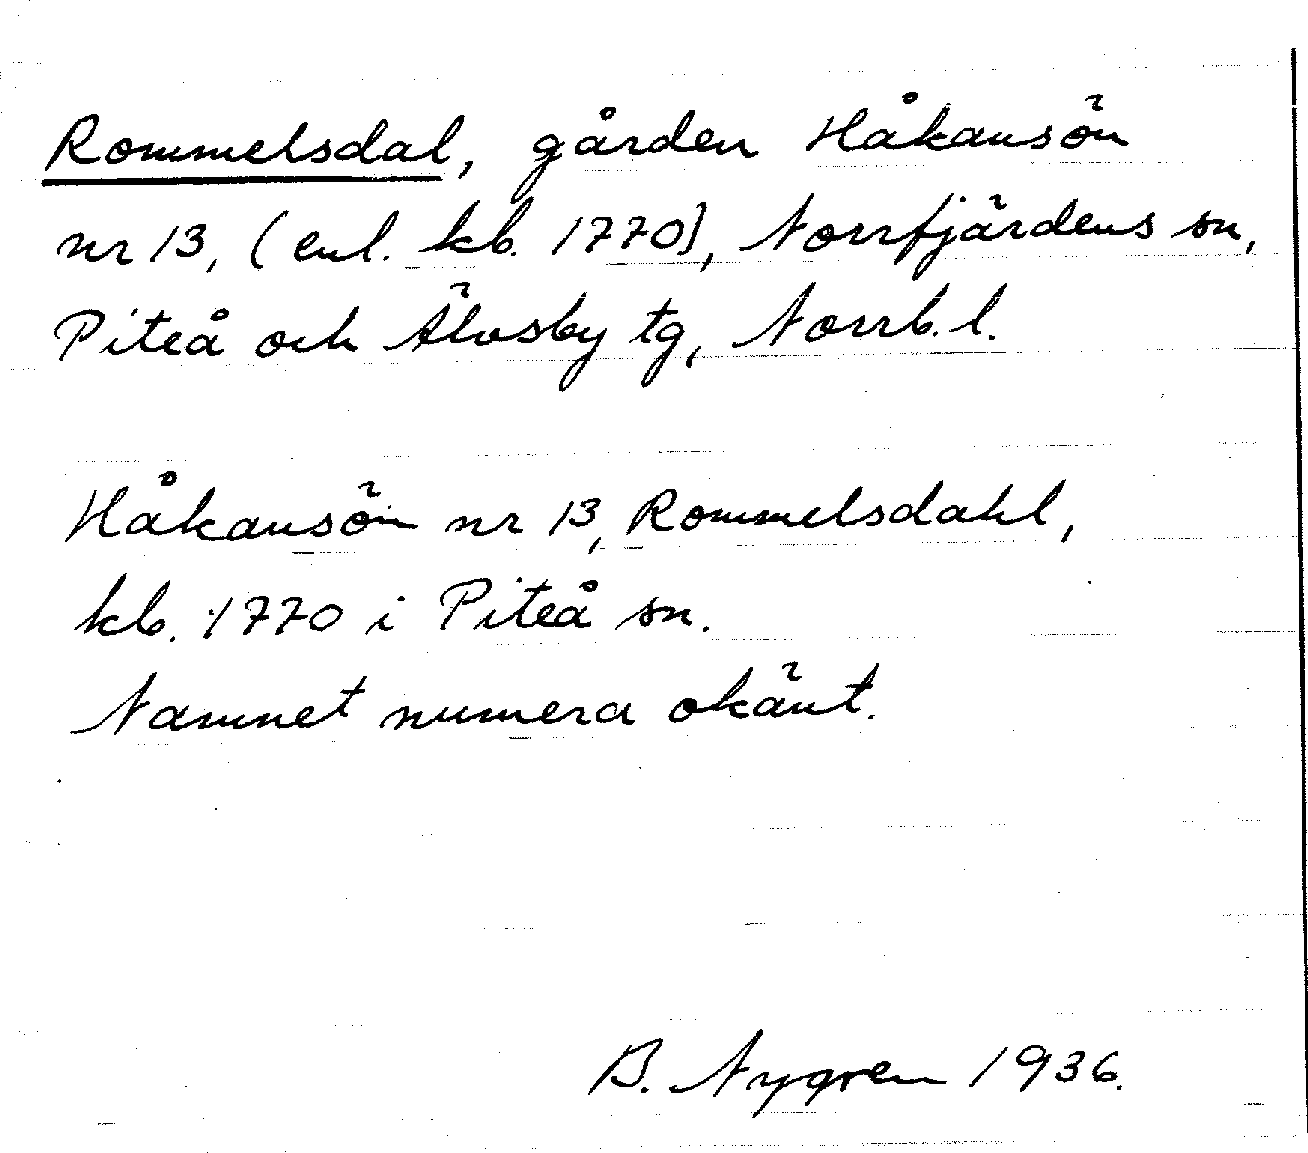 Rommelsdal, gården Håkansön
nr 13, (enl. kb. 1770), Norrfjärdens sn,
Piteå och Älvsby tg, Norrb. l.
Håkansön nr 13, Rommelsdahl,
kb. 1770 i Piteå sn.
Namnet numera okänt.
B. Nygren 1936.